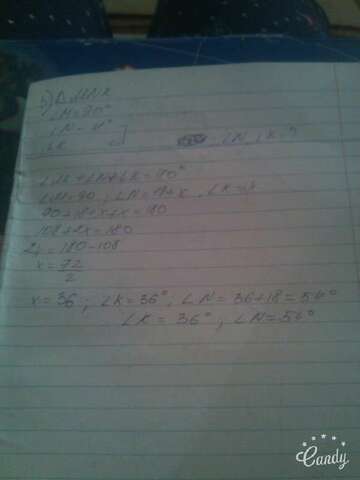 5) Δ MNK
∠M = 90°
∠N - 18°
∠K
∠N, ∠K = ?
∠M + ∠N + ∠K = 180°
∠M = 90; ∠N = 18 + x, ∠K = x
90 + 18 + x + x = 180
108 + 2x = 180
2x = 180 - 108
x = 72
2
x = 36; ∠K = 36°; ∠N = 36 + 18 = 54°
∠K = 36°; ∠N = 54°
Candy